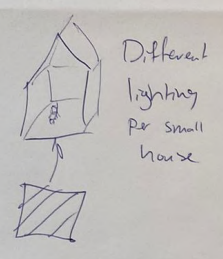 Different
lighting
Per small
house